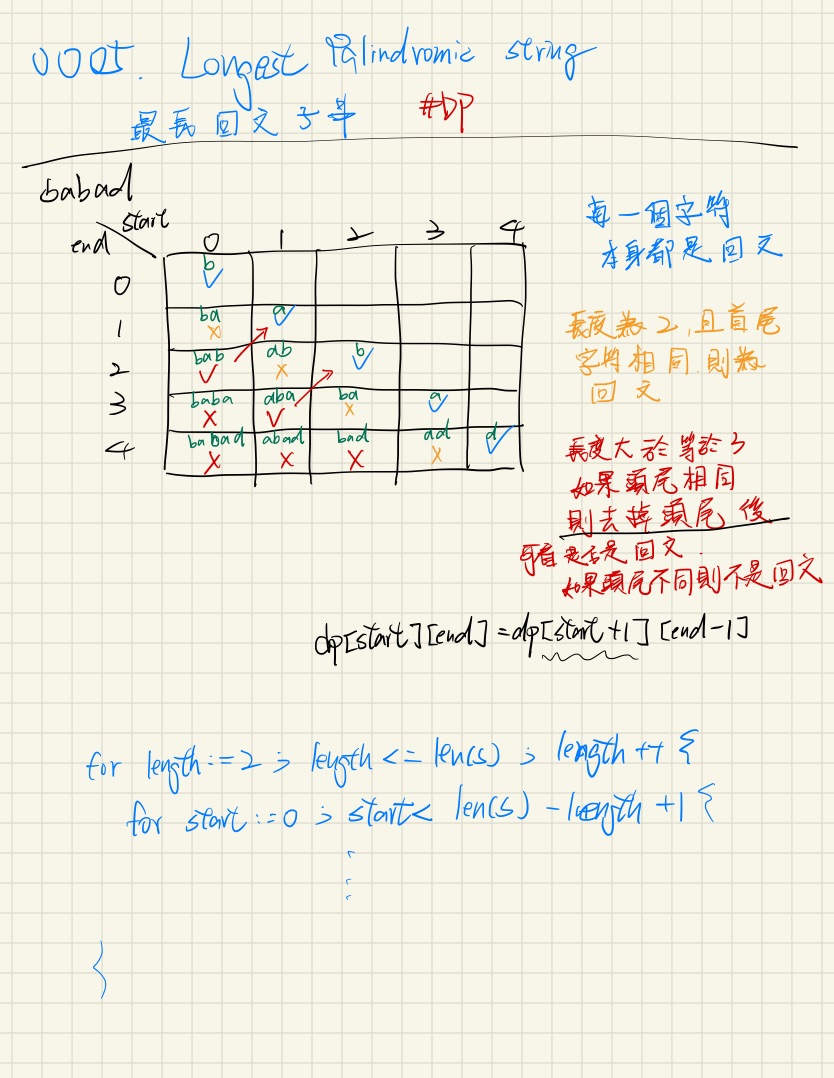 0005. Longest Palindromic string
最長回文子串 #DP
babad
start
end
0 1 2 3 4
0 b ✓
1 ba × a ✓
2 bab ✓ ab × b ✓
3 baba × aba ✓ ba × a ✓
4 babad × abad × bad × ad × d ✓
每一個字符
本身都是回文
長度為2,且首尾
字符相同.則為
回文
長度大於等於3
如果頭尾相同
則去掉頭尾後
再看是否是回文.
如果頭尾不同則不是回文
dp[start][end] = dp[start+1][end-1]
for length := 2 ; length <= len(s) ; length ++ {
for start := 0 ; start < len(s) - length +1 {
⋮
}